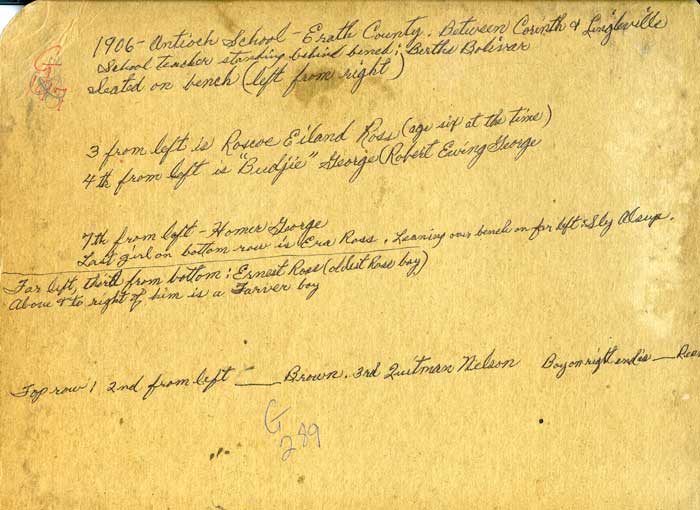 1906 - Antioch School - Erath County. Between Corinth & Lingleville
School teacher standing behind bench; Bertha Bolivar
Seated on bench (left from right)
3 from left is Roscoe Eiland Ross (age six at the time)
4th from left is "Budjie" George (Robert Ewing George
7th from left - Homer George
Last girl on bottom row is Era Ross. Leaning over bench on far left: Sly Alsup.
Far left, third from bottom: Ernest Ross (oldest Ross boy)
Above & to right of him is a Farver boy
Top row: 2nd from left ___ Brown. 3rd Quitman Nielson Boy on right end is ___
G
289